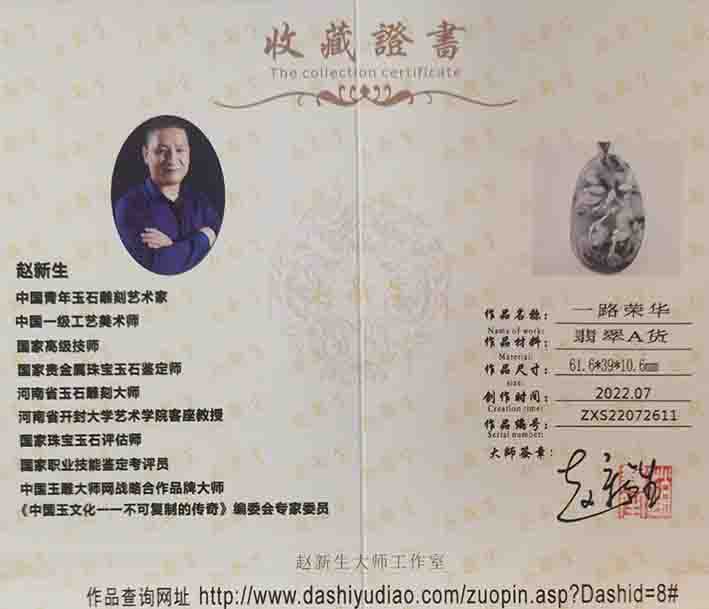 收藏證書
The collection certificate
赵新生
中国青年玉石雕刻艺术家
中国一级工艺美术师
国家高级技师
国家贵金属珠宝玉石鉴定师
河南省玉石雕刻大师
河南省开封大学艺术学院客座教授
国家珠宝玉石评估师
国家职业技能鉴定考评员
中国玉雕大师网战略合作品牌大师
《中国玉文化一一不可复制的传奇》编委会专家委员
作品名称： 一路荣华
Name of work:
作品材料： 翡翠A货
Material:
作品尺寸： 61.6*39*10.6mm
size:
创作时间： 2022.07
Creation time:
作品编号： ZXS22072611
Serial number:
大师签章：
赵新生
赵新生大师工作室
作品查询网址 http://www.dashiyudiao.com/zuopin.asp?Dashid=8#